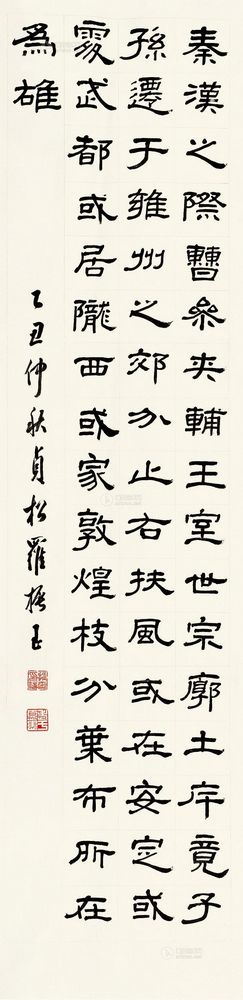 秦漢之際曹叅夾輔王室世宗廓土斥竟子
孫遷于雍州之郊分止右扶風或在安定或
處武都或居隴西或家敦煌枝分葉布所在
為雄
乙丑仲秋貞松羅振玉